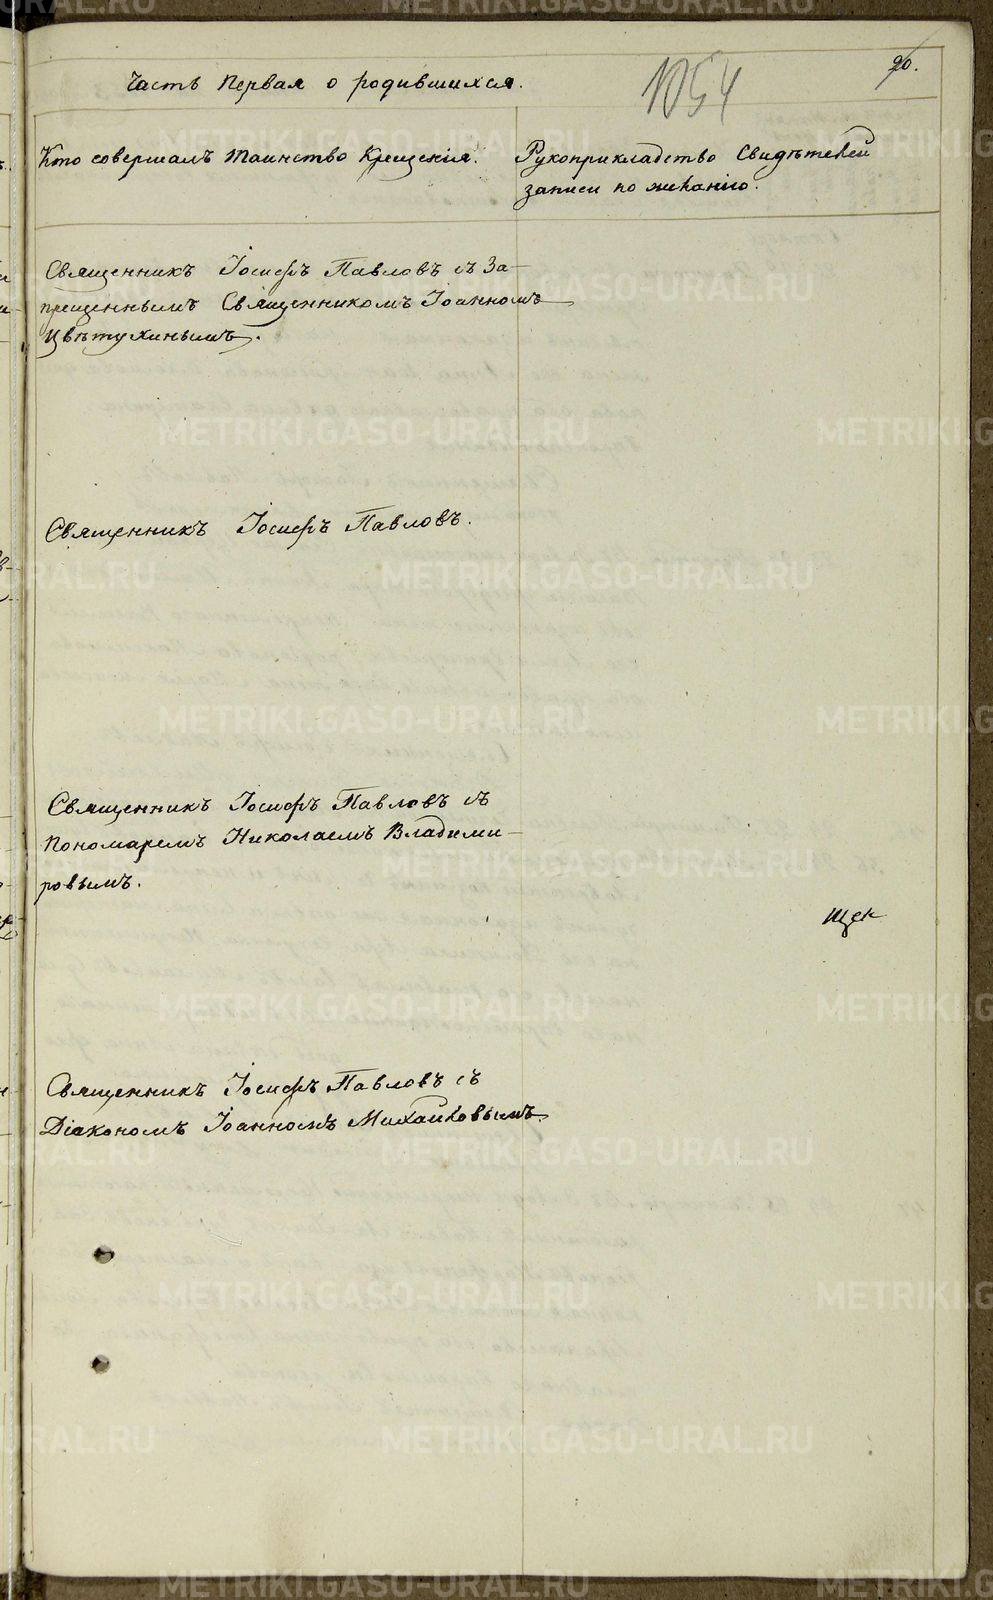 Часть Первая о родившихся.
1054
90.
Кто совершалъ таинство Крещенія.
Рукоприкладство Свидѣтелей
записи по желанію.
Священникъ Іосифъ Павловъ съ За-
прещеннымъ Священникомъ Іоанномъ
Цвѣтухинымъ.
Священникъ Іосифъ Павловъ.
Священникъ Іосифъ Павловъ съ
Пономаремъ Николаемъ Владими-
ровымъ.
Щек
Священникъ Іосифъ Павловъ съ
Діакономъ Іоанномъ Михайловымъ.
METRIKI.GASO-URAL.RU